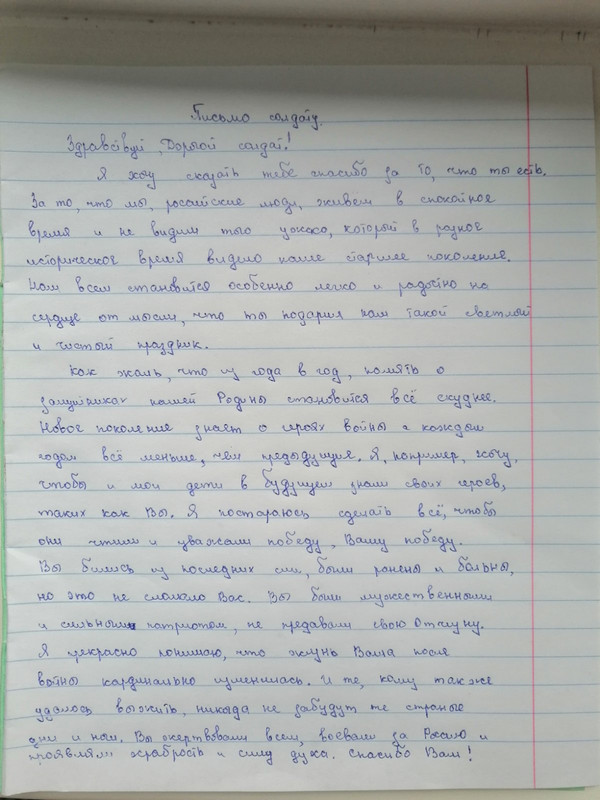 Письмо солдату.
Здравствуй, Дорогой солдат!
Я хочу сказать тебе спасибо за то, что ты есть.
За то, что мы, российские люди, живем в спокойное
время и не видим того ужаса, который в разное
историческое время видело наше старшее поколение.
Нам всем становится особенно легко и радостно на
сердце от мысли, что ты подарил нам такой светлый
и чистый праздник.
Как жаль, что из года в год, память о
защитниках нашей Родины становится всё скуднее.
Новое поколение знает о героях войны с каждым
годом всё меньше, чем предыдущие. Я, например, хочу,
чтобы и мои дети в будущем знали своих героев,
таких как Вы. Я постараюсь сделать всё, чтобы
они чтили и уважали победу, Вашу победу.
Вы бились из последних сил, были ранены и больны,
но это не сломало Вас. Вы были мужественными
и сильными патриотом, не предавали свою Отчизну.
Я прекрасно понимаю, что жизнь Ваша после
войны кардинально изменилась. И те, кому также
удалось выжить, никогда не забудут те страные
дни и ночи. Вы жертвовали всем, воевали за Россию и
проявляли храбрость и силу духа. Спасибо Вам!